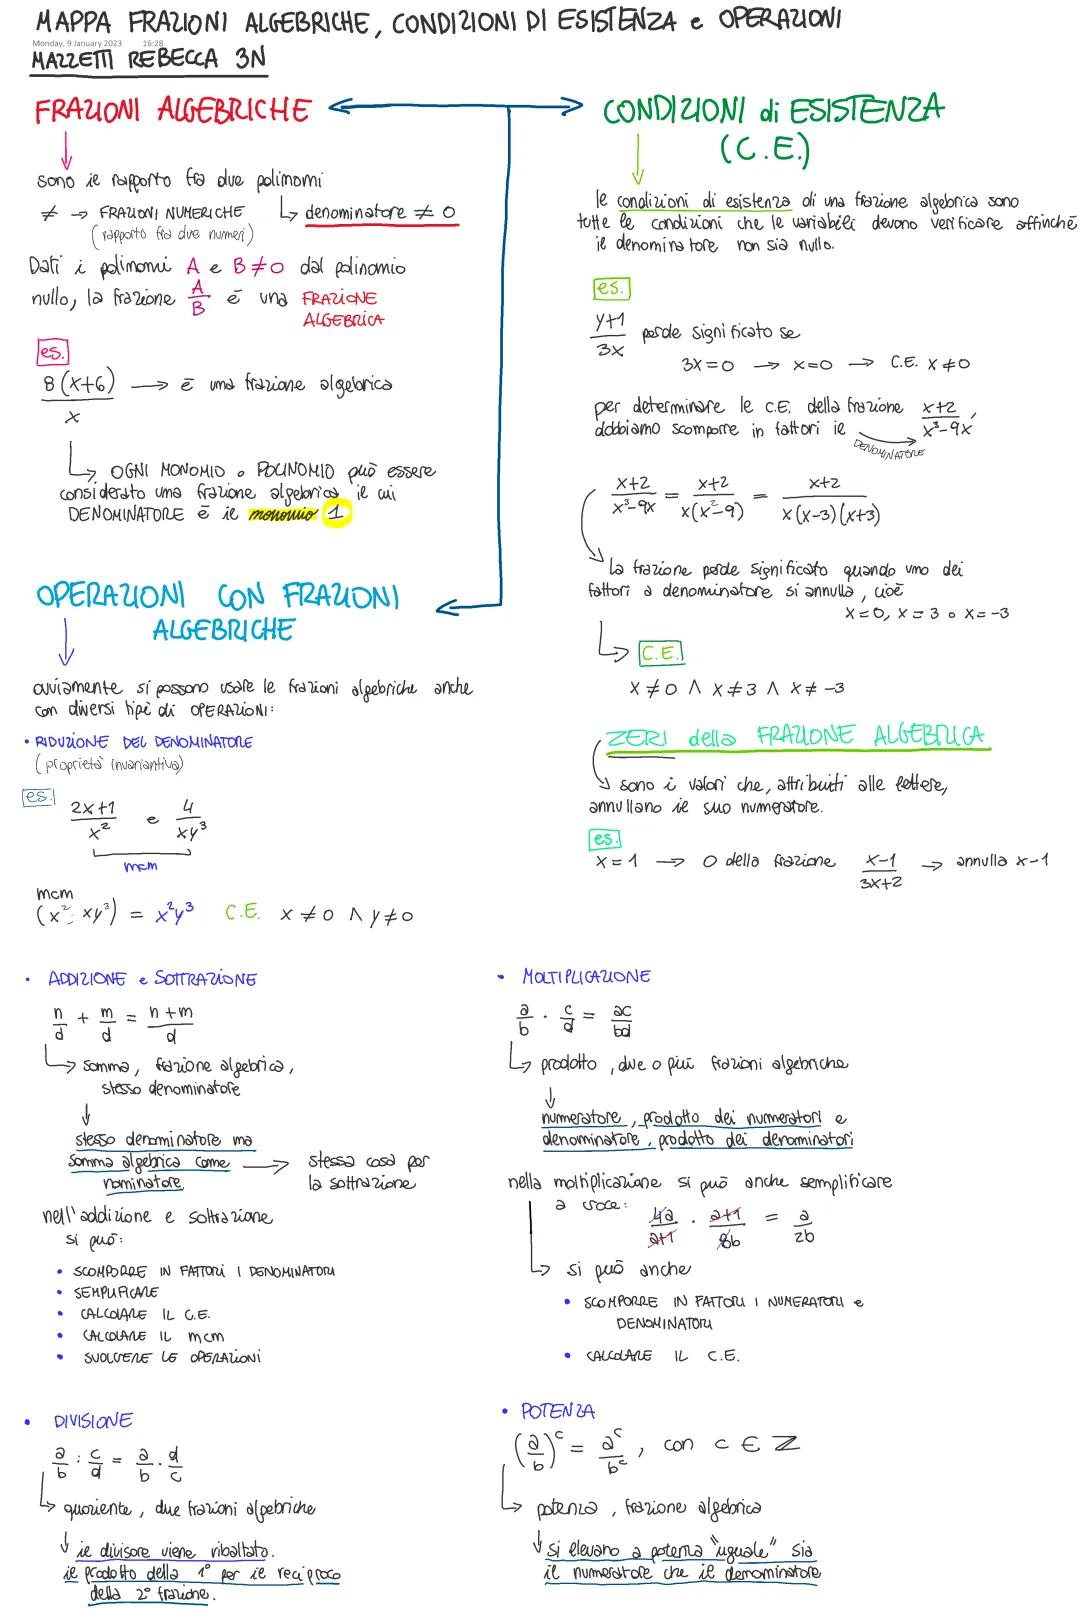 MAPPA FRAZIONI ALGEBRICHE, CONDIZIONI DI ESISTENZA e OPERAZIONI
Monday, 9 January 2023 16:28
MAZZETTI REBECCA 3N
FRAZIONI ALGEBRICHE
sono il rapporto fra due polinomi
≠ → FRAZIONI NUMERICHE
(rapporto fra due numeri)
denominatore ≠ 0
Dati i polinomi A e B≠0 dal polinomio
nullo, la frazione A/B è una FRAZIONE
ALGEBRICA
es.
8(x+6)/x → è una frazione algebrica
OGNI MONOMIO o POLINOMIO può essere
considerato una frazione algebrica il cui
DENOMINATORE è il monomio 1
CONDIZIONI di ESISTENZA
(C.E.)
le condizioni di esistenza di una frazione algebrica sono
tutte le condizioni che le variabili devono verificare affinché
il denominatore non sia nullo.
es.
y+1/3x perde significato se
3x=0 → x=0 → C.E. x≠0
per determinare le C.E. della frazione x+2/x³-9x,
dobbiamo scomporre in fattori il
DENOMINATORE
x+2/x³-9x = x+2/x(x²-9) = x+2/x(x-3)(x+3)
La frazione perde significato quando uno dei
fattori a denominatore si annulla, cioè
x=0, x=3 o x=-3
C.E.
x≠0 ∧ x≠3 ∧ x≠-3
ZERI della FRAZIONE ALGEBRICA
sono i valori che, attribuiti alle lettere,
annullano il suo numeratore.
es.
x=1 → 0 della frazione x-1/3x+2 → annulla x-1
OPERAZIONI CON FRAZIONI
ALGEBRICHE
ovviamente si possono usare le frazioni algebriche anche
con diversi tipi di OPERAZIONI:
• RIDUZIONE DEL DENOMINATORE
(proprietà invariantiva)
es.
2x+1/x² e 4/xy³
mcm
mcm
(x²; xy³) = x²y³ C.E. x≠0 ∧ y≠0
• ADDIZIONE e SOTTRAZIONE
n/d + m/d = n+m/d
somma, frazione algebrica,
stesso denominatore
stesso denominatore ma
somma algebrica come
nominatore
stessa cosa per
la sottrazione
nell'addizione e sottrazione
si può:
• SCOMPORRE IN FATTORI I DENOMINATORI
• SEMPLIFICARE
• CALCOLARE IL C.E.
• CALCOLARE IL mcm
• SVOLGERE LE OPERAZIONI
• MOLTIPLICAZIONE
a/b · c/d = ac/bd
prodotto, due o più frazioni algebriche
numeratore, prodotto dei numeratori e
denominatore, prodotto dei denominatori
nella moltiplicazione si può anche semplificare
a croce: 4a/a+1 · a+1/8b = a/2b
si può anche
• SCOMPORRE IN FATTORI I NUMERATORI e
DENOMINATORI
• CALCOLARE IL C.E.
• DIVISIONE
a/b : c/d = a/b · d/c
quoziente, due frazioni algebriche
il divisore viene ribaltato.
il prodotto della 1° per il reciproco
della 2° frazione.
• POTENZA
(a/b)ᶜ = aᶜ/bᶜ, con c ∈ Z
potenza, frazione algebrica
si elevano a potenza "uguale" sia
il numeratore che il denominatore